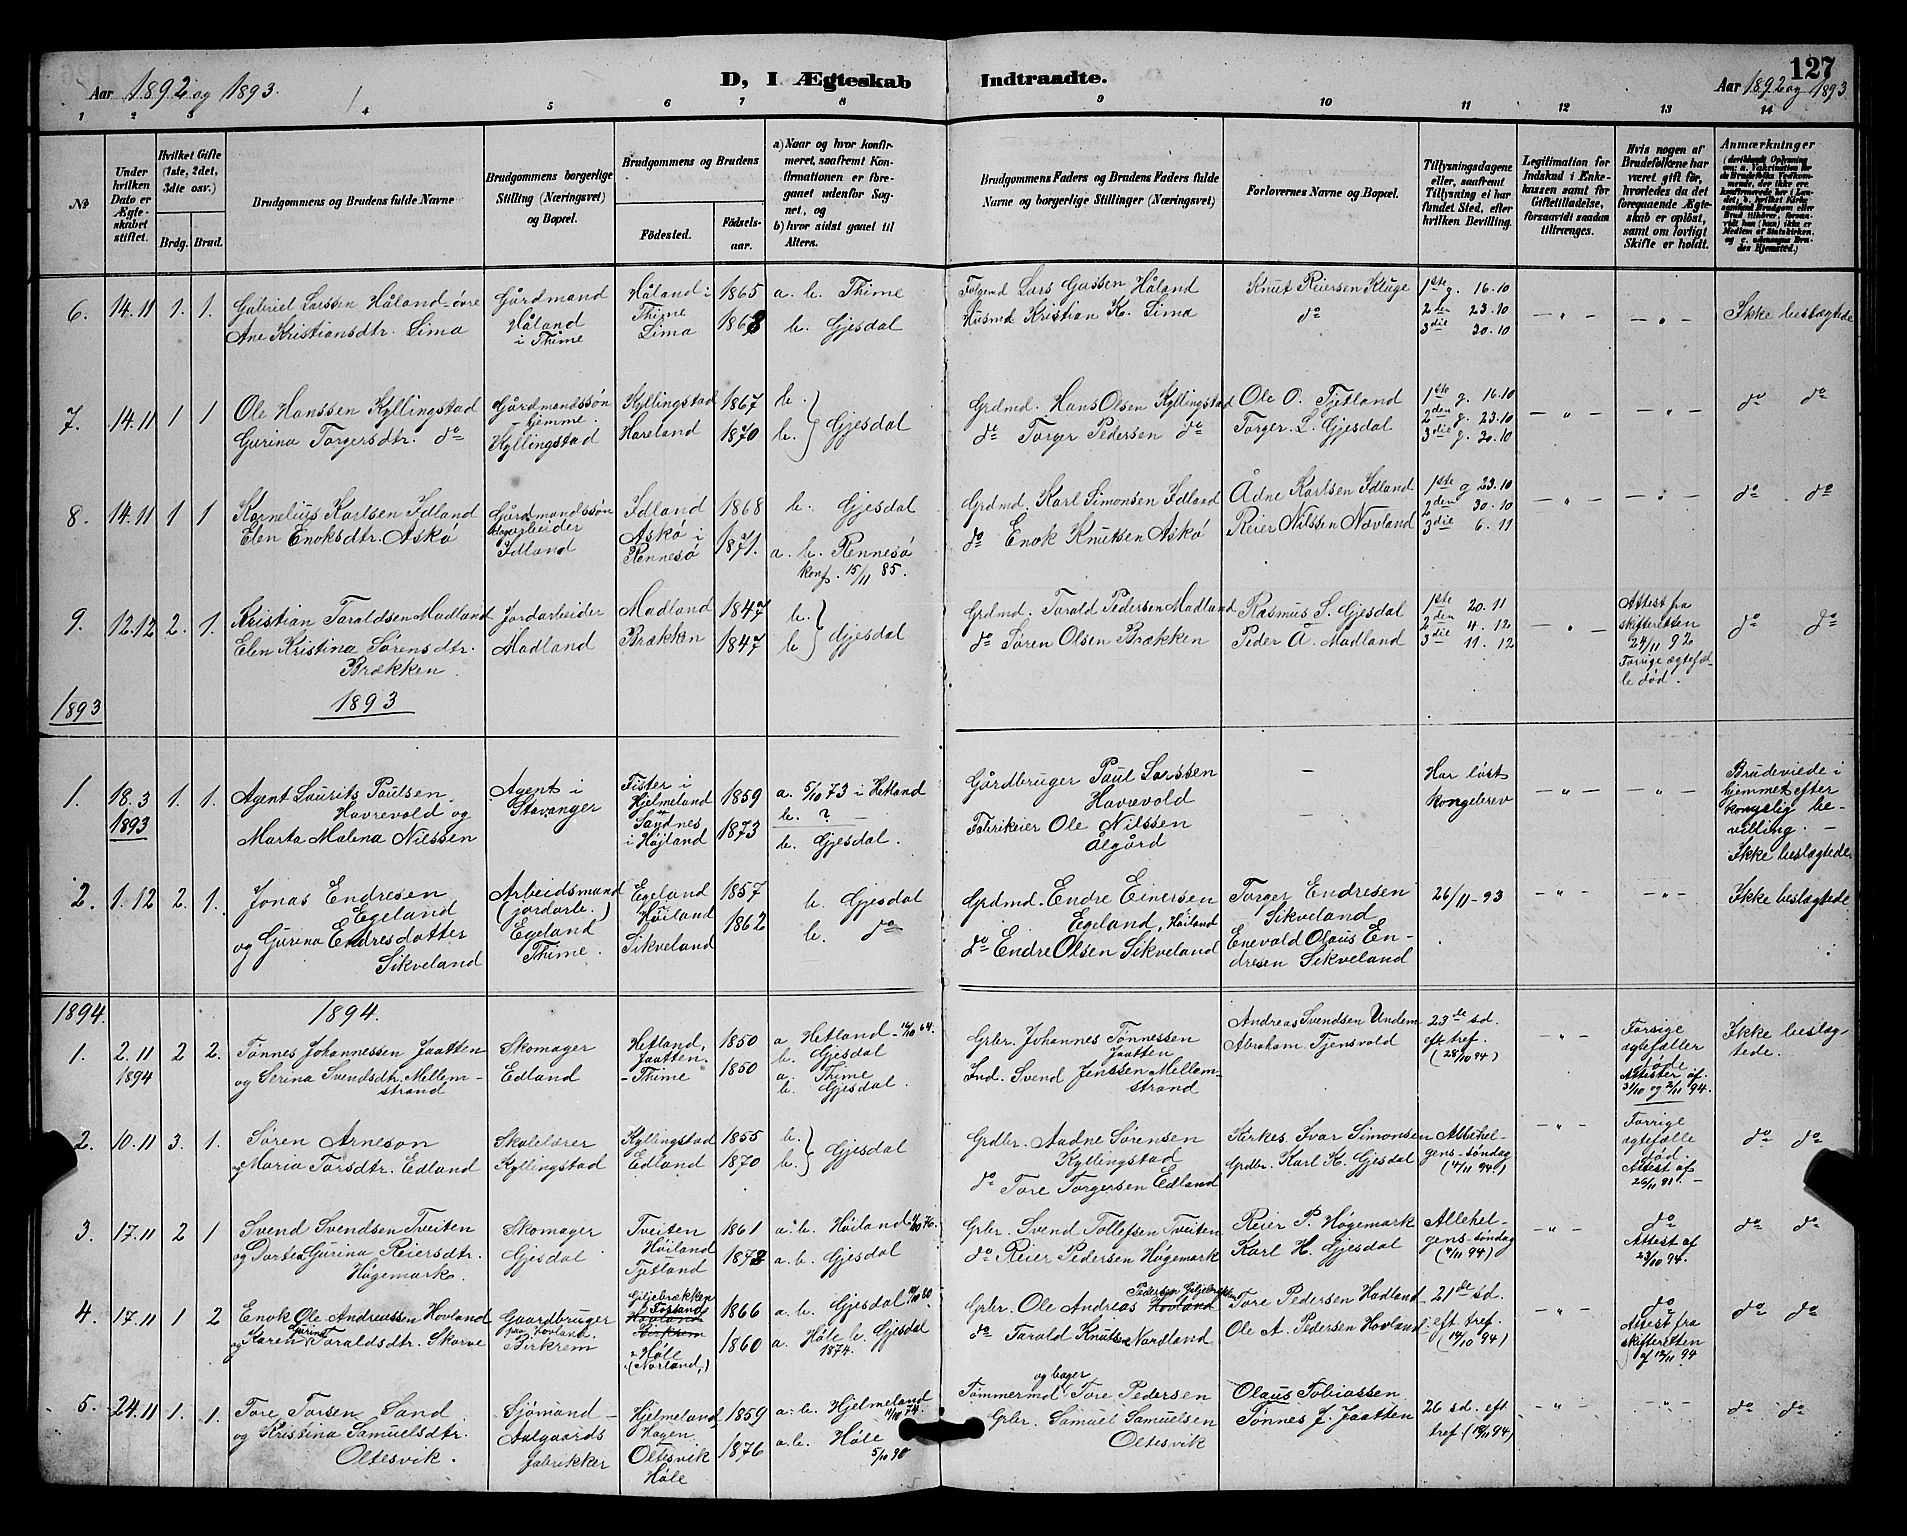 127
Aar 1892 og 1893.
D, I Ægteskab Indtraadte.
Aar 1892 og 1893
1 2 3 4 5 6 7 8 9 10 11 12 13 14
No
Under hvilken Dato er Ægteskabet stiftet.
Hvilket Gifte (1ste, 2det, 3die osv.)
Brdg. Brud.
Brudgommens og Brudens fulde Navne
Brudgommens borgerlige Stilling (Næringsvei) og Bopæl.
Brudgommens og Brudens
Fødested. Fødselsaar.
a) Naar og hvor konfirmeret, saafremt Konfirmationen er foregaaet udenfor Sognet, og
b) hvor sidst gaaet til Alters.
Brudgommens Faders og Brudens Faders fulde Navne og borgerlige Stillinger (Næringsvei)
Forlovernes Navne og Bopæl.
Tillysningsdagene eller, saafremt Tillysning ei har fundet Sted, efter hvilken Bevilling.
Legitimation for Indskud i Enkekassen samt for Giftetilladelse, forsaavidt saadan tiltrænges.
Hvis nogen af Brudefolkene har været gift før, hvorledes da det foregaaende Ægteskab er opløst, samt om lovligt Skifte er holdt.
Anmærkninger
6. 14.11 1. 1. Gabriel Larssen Håland øvre
Ane Kristiansdtr. Lima
Gårdmand
Håland
i Thime
Håland i
Thime
Lima
1865
1868
a. b. Thime
b. Gjesdal
Folgemd Lars Gassen Håland
Husmd Kristian K. Lima
Knut Reiersen Kluge
do
1ste g. 16.10
2den 23.10
3die 30.10
– " –
– " –
Ikke beslægtede
7. 14.11 1 1 Ole Hanssen Kyllingstad
Gurina Torgersdtr. do
Gårdmandssøn
hjemme.
Kyllingstad
Kyllingstad
Hareland
1867
1870
b.
b. } Gjesdal
Grdmd. Hans Olsen Kyllingstad
do Torger Pedersen do
Ole O. Fjetland
Torger L. Gjesdal
1ste g. 16.10
2den g. 23.10
3die g. 30.10
– " –
– " –
do do
8. 14.11 1 1 Kornelius Karlsen Idland
Elen Enoksdtr. Askø
Gårdmandssøn
dagarbeider
Idland
Idland
Askø i
Rennesø
1868
1871.
b. Gjesdal
a. b. Rennesø
konf. 15/11 85.
Grdmd. Karl Simonsen Idland
do Enok Knutsen Askø
Ådne Karlsen Idland
Reier Nilssen Nævland
1ste g 23.10
2den 30.10
3die 6.11
– " –
– " –
do do
9. 12.12 2. 1. Kristian Taraldsen Madland
Elen Kristina Sørensdtr.
Brækken.
Jordarbeider
Madland
Madland
Brækken
1847
1847
b.
b } Gjesdal
Grdmd. Tarald Pedersen Madland
do Søren Olsen Brækken
Rasmus S. Gjesdal
Peder Å. Madland
1ste 20.11
2den 4.12
3die 11.12
– " –
Attest fra
skifteretten
24/11 92
Forrige ægtefæl-
le død.
do do
1893 1893
1. 18.3
1893
1. 1. Agent Laurits Paulsen
Havrevold og
Marta Malena Nilssen
Agent i
Stavanger
Fister i
Hjelmeland
Sandnes
i Højland
1859
1873
a. 5/10 73 i Hetland
b. ? –
b. Gjesdal.
Gårdbruger Paul Larssen
Havrevold
Fabrikeier Ole Nilssen
Ålgård
–
–
Har løst
kongebrev
– " –
– " –
Brudeviede i
hjemmet efter
kongelig be-
villing. –
Ikke beslægtede
2. 1.12 2. 1. Jonas Endresen
Egeland
og Gurina Endresdatter
Sikveland
Arbeidsmand
(jordarb.)
Egeland
Thime.
Egeland
Høiland
Sikveland
1857
1862
b. Gjesdal
b. do
Grdmd. Endre Einersen
Egeland, Høiland
do Endre Olsen Sikveland
Torger Endresen
Sikveland
Enevold Olaus En-
dresen Sikveland
26/11–93
– " –
– " –
Ikke beslægtede
1894. 1894.
1. 2.11
1894
2 2. Tønnes Johannessen Jaatten
og Serina Svendsdtr. Mellem-
strand
Skomager
Edland
Hetland,
Jaatten.
– Thime
1850
1850
a Hetland – 16/10 64.
b. Gjesdal
a. Thime
b. Gjesdal.
Grbr. Johannes Tønnessen
Jaatten
Ind. Svend Jenssen Mellem-
strand
Andreas Svendsen Undem
Abraham Tjensvold
23de sd.
eft tref.
(28/10 94)
– " –
Forrige
ægtefæller
døde.
Attester af
31/10 og 2/11 94.
Ikke beslæg-
tede.
2. 10.11 3. 1. Søren Arneson
og Maria Torsdtr. Edland
Skolelærer
Kyllingstad
Kyllingstad
Edland
1855
1870
b.
b. } Gjesdal
Grdbr. Aadne Sørensen
Kyllingstad
do Tore Torgersen Edland
Kirkes. Ivar Simonsen
Grdbr. Karl H. Gjesdal
Allehel-
gens-søndag
(4/11 94)
– " –
Forrige
ægtefælle
død.
Attest af
26/11 91. –
do do
3. 17.11 2 1 Svend Svendsen Tveiten
og Dortea Gurina Reiersdtr.
Høgemark.
Skomager
Gjesdal
Tveiten
Høiland
Fjetland
1861
1873
a. b. Høiland
a. b. Gjesdal
Grbr. Svend Tollefsen Tveiten
do Reier Pedersen Høgemark
Reier P. Høgemark
Karl H. Gjesdal
Allehel-
gens-søndag
(4/11 94)
– " –
do
Attest af
23/10 94.
do do
4. 17.11 1 2 Enok Ole Andreassen Hovland
og Karen Gurine Taraldsdtr. Skorve
Gaardbruger
paa Hovland.
Birkrem
Giljebrækken
Forsand
Hovland
Birkrem
Høle
(Norland.)
1866
1860
a. b. Gjesdal
a. Høle b. Gjesdal
1874.
Grbr. Ole Andreas Pedersen Giljebrækken Hovland
do Tarald Knutsen Nordland
Tore Pedersen Hadland
Ole A. Pedersen Hovland
21de sd.
eft tref.
(14/10 94)
– " –
do
Attest fra
skifteretten
af 12/11 94
do do
5. 24.11 1. 1. Tore Torsen Sand
og Kristina Samuelsdtr.
Oltesvik.
Sjømand –
Aalgaards
fabrikker
Hjelmeland
Hagen
Oltesvik
Høle
1859
1876
a. b. Hjelmeland
a. b. Høle
5/10 90
Tømmermd og bager Tore Pedersen
Grbr. Samuel Samuelsen
Oltesvik
Olaus Tobiassen
Tønnes J. Jaatten
26 sd. eft
tref (18/11 94)
– " –
– " –
do do